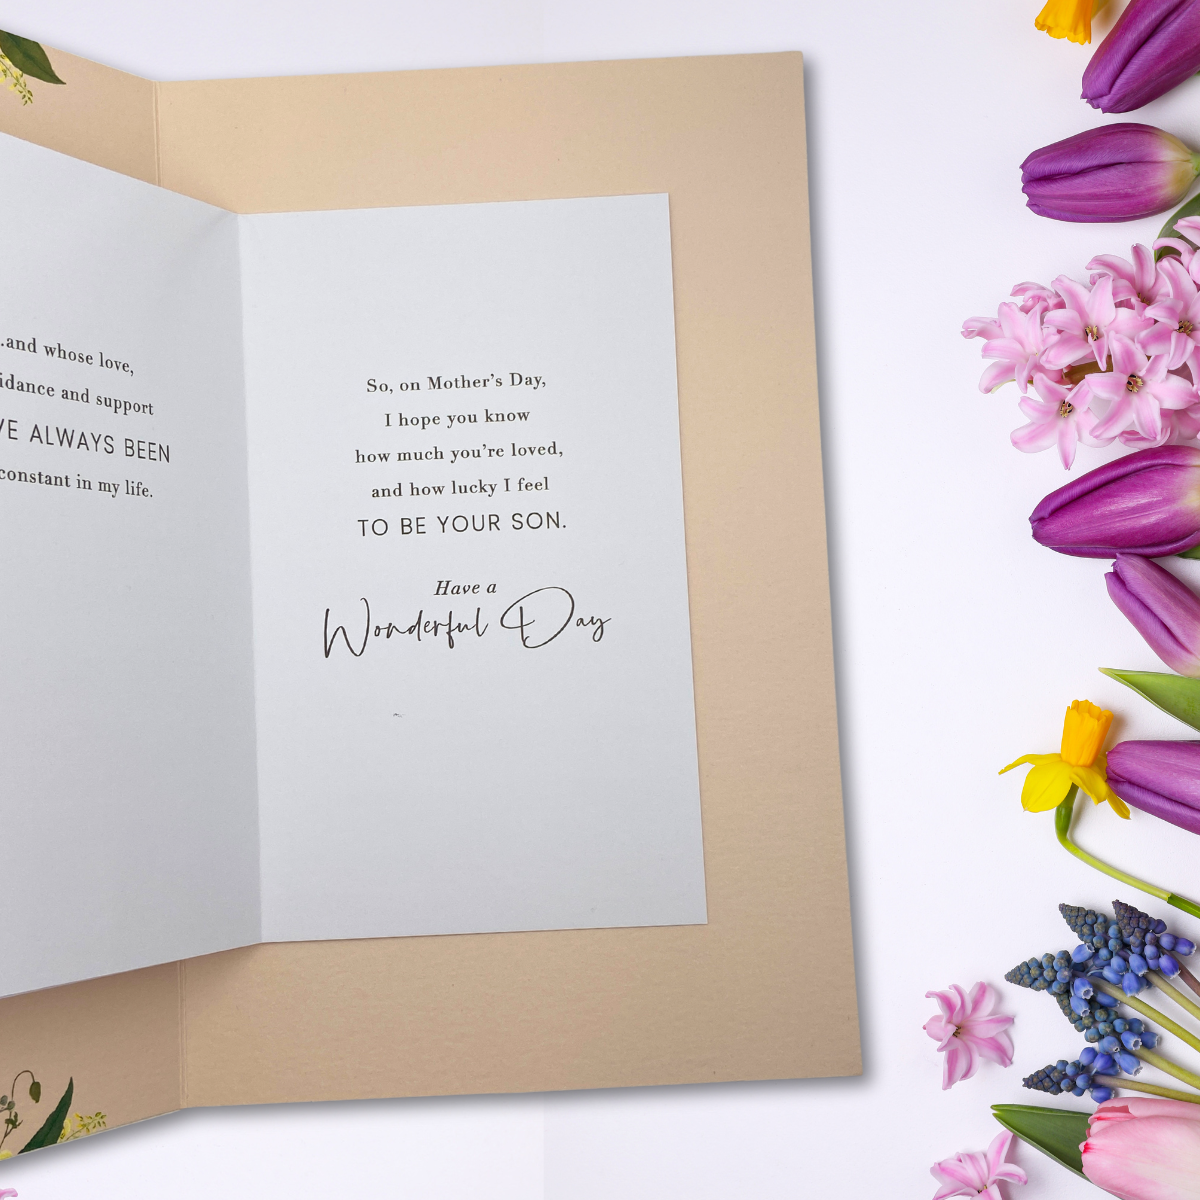 .and whose love,
idance and support
VE ALWAYS BEEN
constant in my life.
So, on Mother's Day,
I hope you know
how much you're loved,
and how lucky I feel
TO BE YOUR SON.
Have a
Wonderful Day